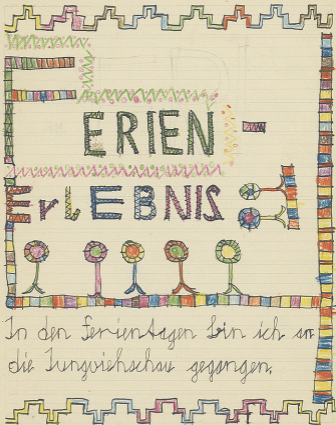 FERIEN-
ErLEBNIS
In den Ferientagen bin ich an
die Jungviehschau gegangen.